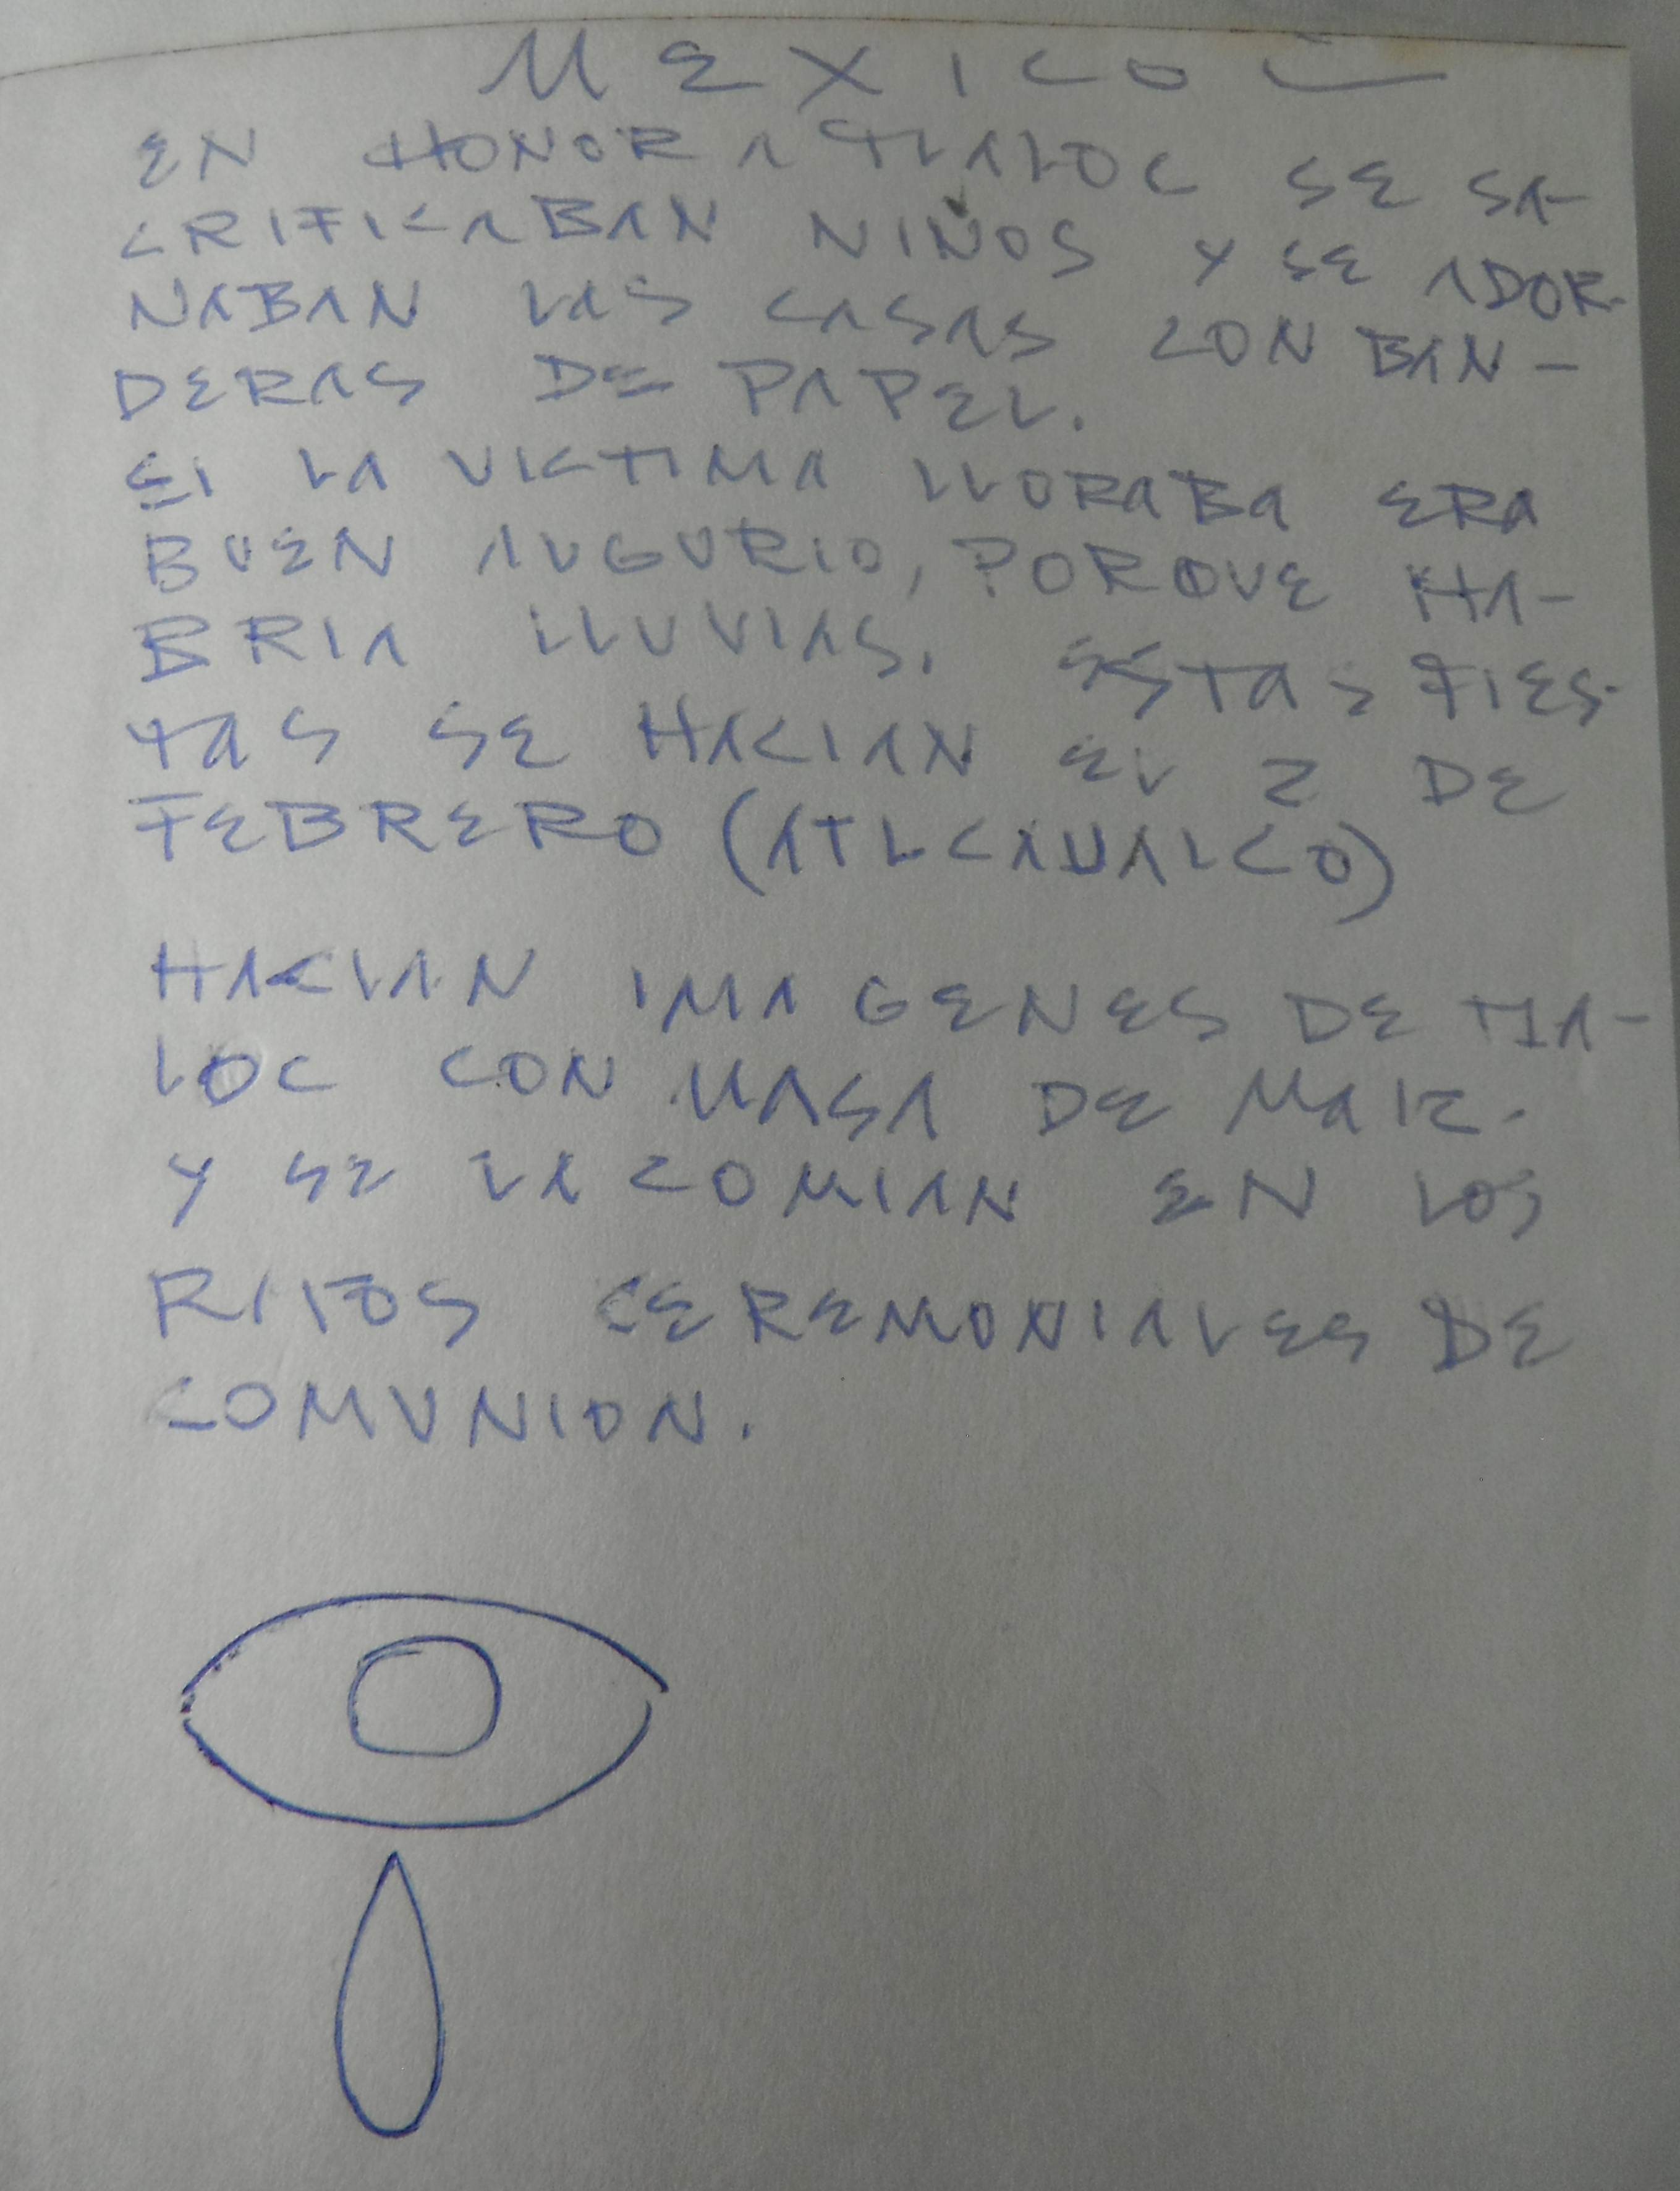 MEXICO
EN HONOR A TLALOC SE SA-
CRIFICABAN NIÑOS Y SE ADOR-
NABAN LAS CASAS CON BAN-
DERAS DE PAPEL.
SI LA VICTIMA LLORABA ERA
BUEN AUGURIO, PORQUE HA-
BRIA LLUVIAS. ESTAS FIES-
TAS SE HACIAN EL 2 DE
FEBRERO (ATLCAUALCO)
HACIAN IMAGENES DE TLA-
LOC CON MASA DE MAIZ.
Y SE LA COMIAN EN LOS
RITOS CEREMONIALES DE
COMUNION.